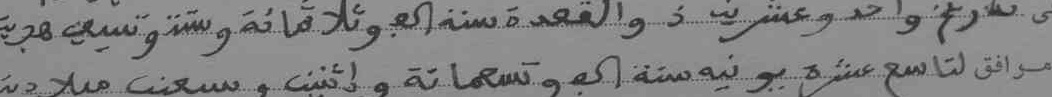 تاريخ واحد وعشرين ذو القعدة سنة الف وثلاثمائة وستة وتسعين هجرية
موافق لتاسع عشرة يونيه سنة الف وتسعمائة واثنين وسبعين ميلادية